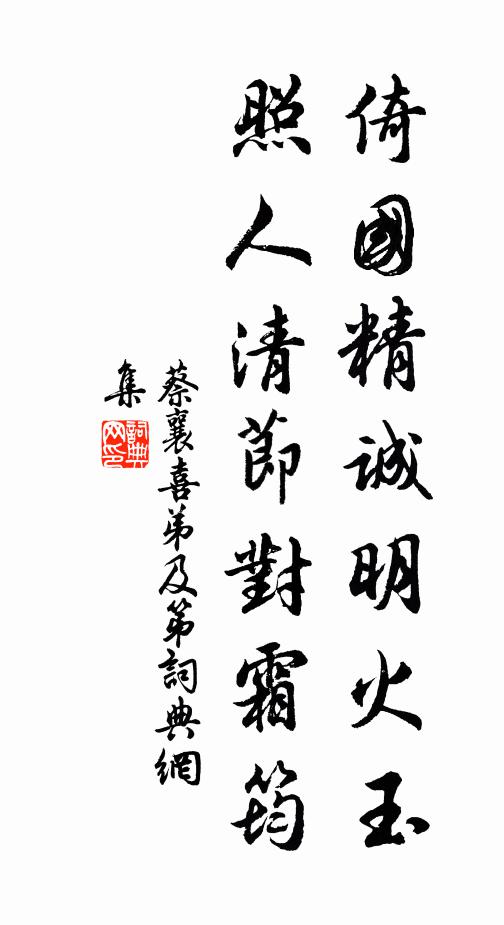 倚國精誠明火玉
照人清節對霜筠
蔡襄喜弟及第詞典網
集
詞典
网印